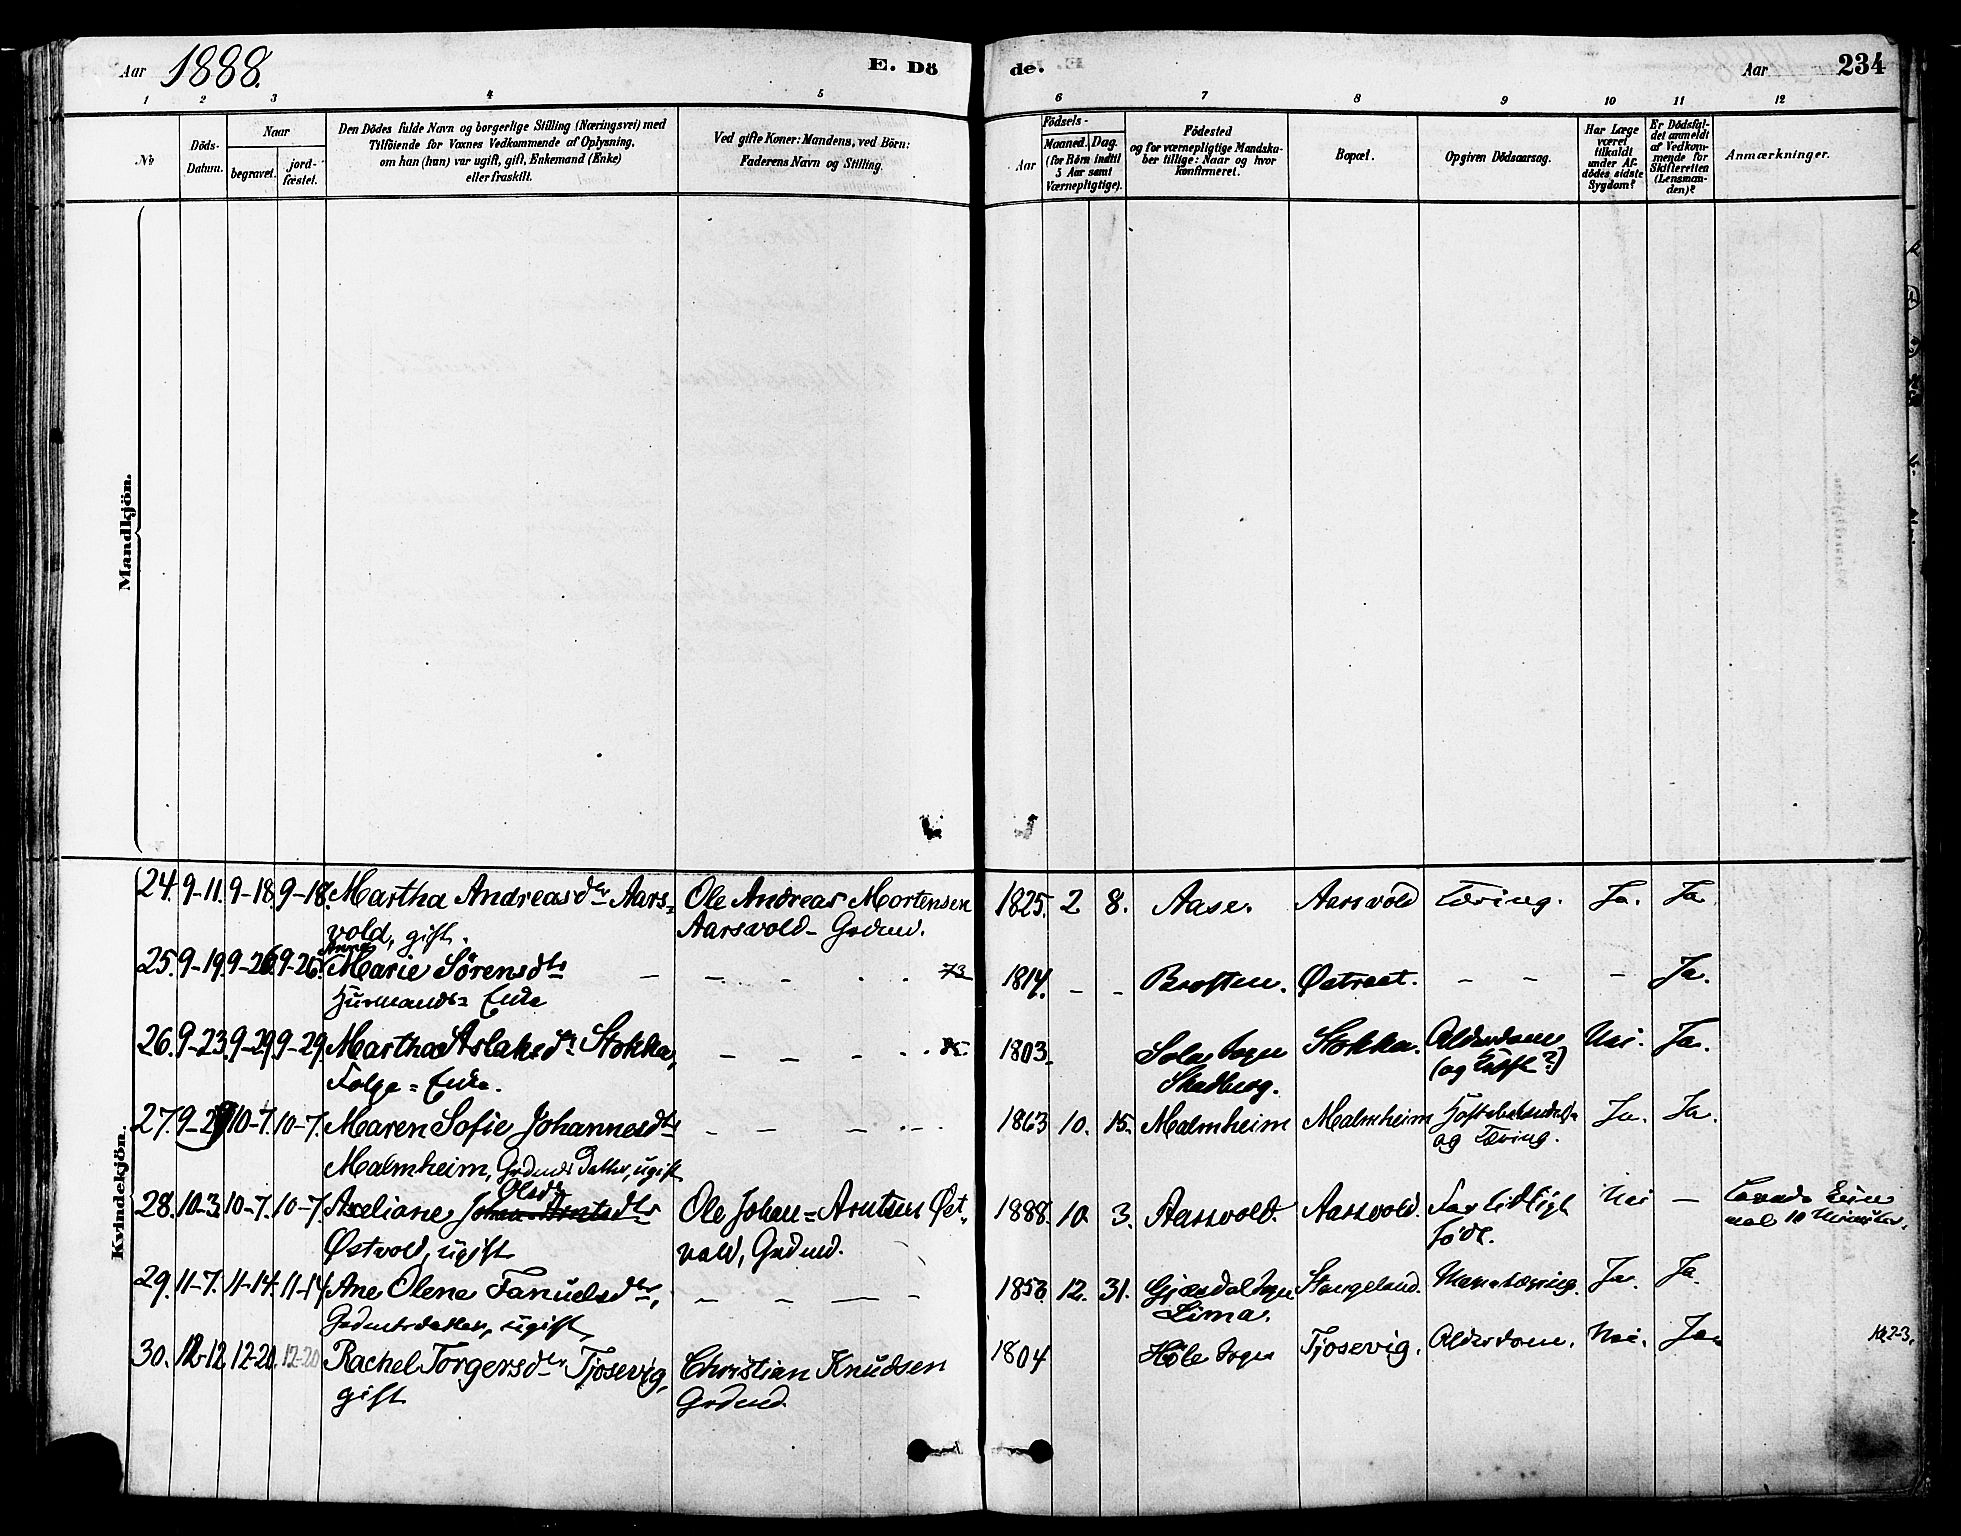 Aar 1888.
E. Dö
de.
Aar
234
1 2 3 4 5 6 7 8 9 10 11 12
No
Döds-
Datum.
Naar
begravet.
jord-
fæstet.
Den Dödes fulde Navn og borgerlige Stilling (Næringsvei) med
Tilföiende for Voxnes Vedkommende af Oplysning,
om han (hun) var ugift, gift, Enkemand (Enke)
eller fraskilt.
Ved gifte Koner: Mandens, ved Börn:
Faderens Navn og Stilling.
Födsels-
Aar
Maaned. Dag.
(for Börn indtil
5 Aar samt
Værnepligtige).
Födested
og for værnepligtige Mandska-
ber tillige: Naar og hvor
konfirmeret.
Bopæl.
Opgiven Dödsaarsag.
Har Læge
været
tilkaldt
under Af-
dödes sidste
Sygdom?
Er Dödsfal-
det anmeldt
af Vedkom-
mende for
Skifteretten
(Lensman-
den)?
Anmærkninger.
Mandkjön.
Kvindekjön.
24. 9-11. 9-18. 9-18. Martha Andreasdtr Aars= Ole Andreas Mortensen 1825. 2 8. Aase. Aarsvold Tæring. Ja. Ja.
vold, gift. Aarsvold- Grdmd.
Anne
25. 9-19. 9-26. 9-26. Marie Sørensdtr – – – . . 73 1814. – – Brosten. Østraat. – – – Ja.
Husmands= Enke
26. 9-23. 9-29. 9-29. Martha Aslaksdtr Stokka, – – – . . 85 1803. Sola Sogn Stokka. Alderdom Nei. Ja.
Folge= Enke. Skadberg. (og ?)
27. 9-29 10-7. 10-7. Maren Sofie Johannesdtr – – – . – 1863 10. 15. Malmheim Malmheim Ja. Ja.
Malmheim, Grdmds Datter, ugift og Tæring.
Olsdtr
28. 10-3. 10-7. 10-7. Axeliane Johan=Arntsdtr Ole Johan=Arntsen Øst- 1888. 10. 3. Aarsvold. Aarsvold. For tidligt Nei –
Østvold, ugift vold, Grdmd. født. 10 Minutter.
29. 11-7. 11-14. 11-14. Ane Olene Fanuelsdtr, – – – – 1853. 12. 31. Gjæsdal Sogn Stangeland. Ja. Ja.
Grdmdsdatter, ugift, Lima.
30. 12-12 12-20. 12-20 Rachel Torgersdtr Tjosevig, Christian Knudsen 1804 Høle Sogn Tjosevig. Alderdom. Nei. Ja.
gift Grdmd.